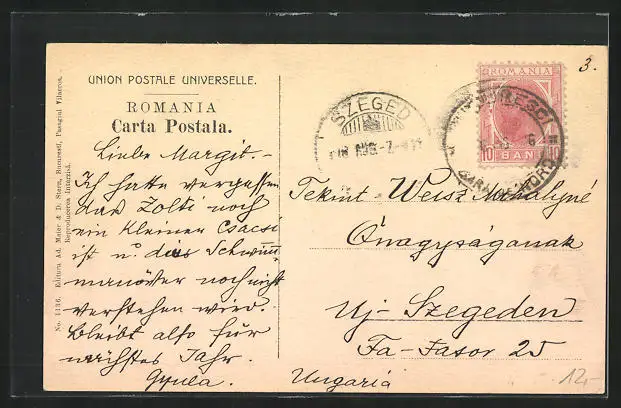 UNION POSTALE UNIVERSELLE.
ROMANIA
Carta Postala.
Liebe Margit. -
Ich hatte vergessen
das Zolti noch
ein kleiner Csacsi
ist u. dies Schwimm-
manöver noch nicht
verstehen wird.
Bleibt also für
nächstes Jahr.
Gyula.
No. 1136. Editura Ad. Maier & D. Stern, Bucuresti, Pasagiul Villacros.
Reproducerea Interzisă.
SZEGED
ROMANIA
10 BANI 10
GARA DE NORD
3.
Tekint. Weisz Mihályné
Önagyságának
Uj-Szegeden
Fa-Fasor 25
Ungaria
12,-